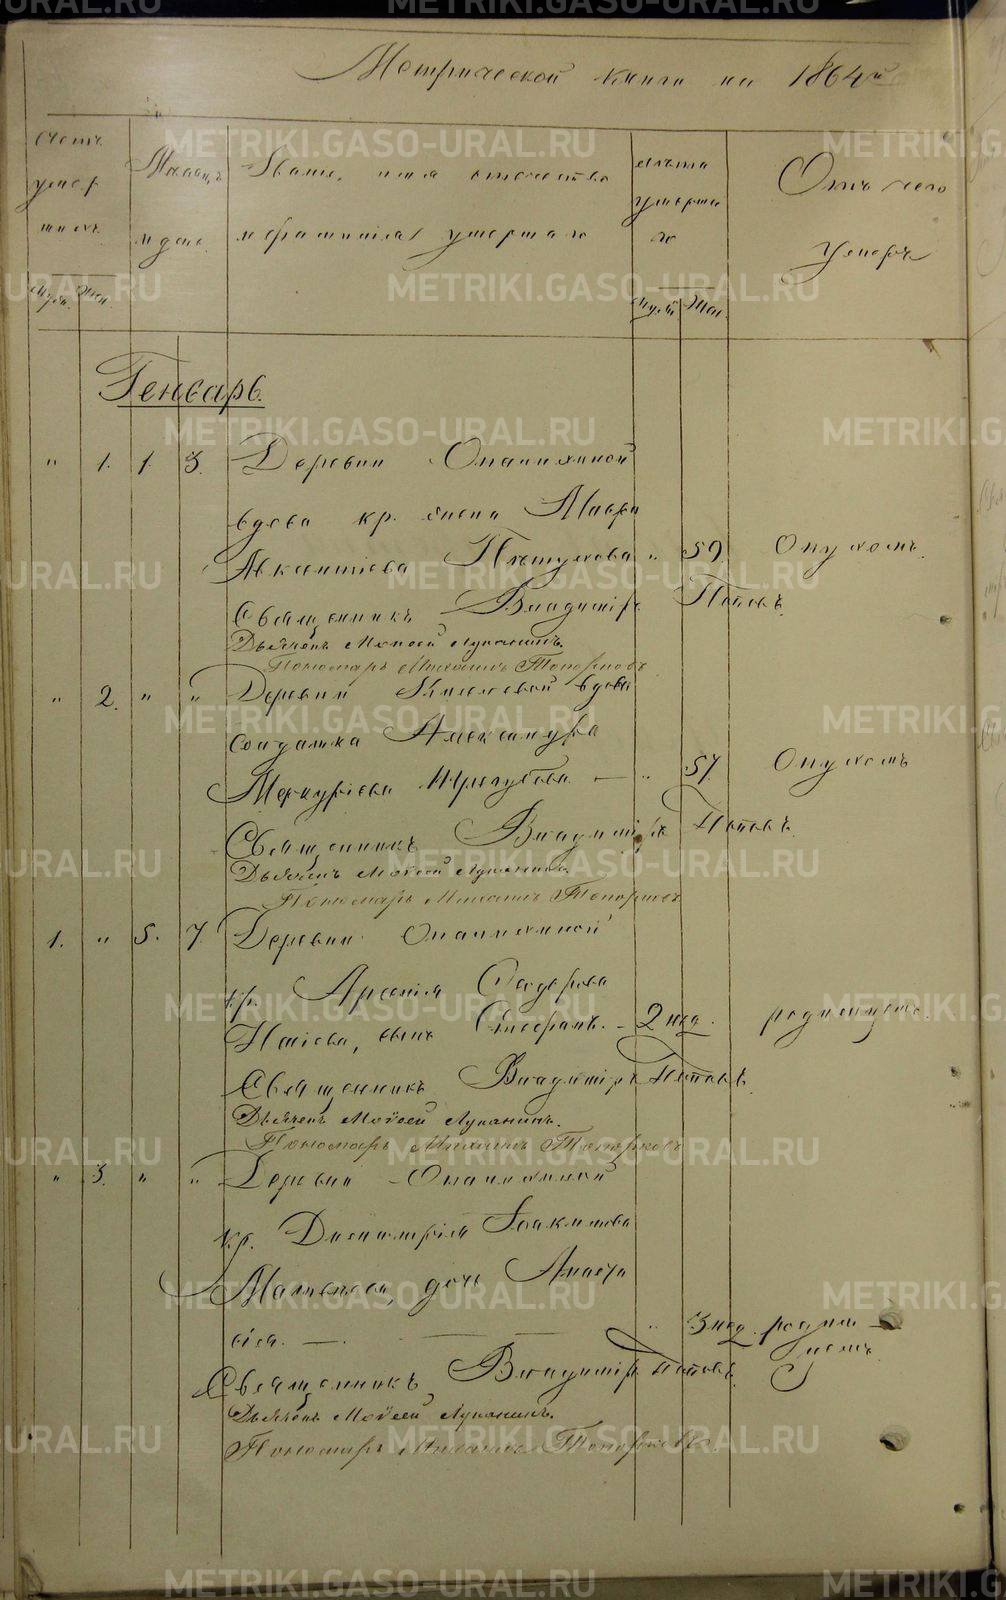 Метрической книги на 1864й
Счетъ умер шихъ
Муж. Жен.
Мѣсяцъ и день
Званіе, имя отчество и фамилія умершаго
лѣта умерша го
Муж. Жен.
Отъ чего умеръ
Генварь.
" 1. 1. 3. Деревни Опалихиной
вдова кр. жена Мавра
Авксентіева Пѣтухова " 59. Опухомъ.
Священникъ Владиміръ Поповъ.
Дьячекъ Моѵсей Луканинъ.
Пономарь Михаилъ Топорковъ
" 2. " " Деревни Киселевой вдова
солдатка Александра
Меркуріева — " 57 Опухомъ
Священникъ Владиміръ Поповъ.
Дьячекъ Моѵсей Луканинъ.
Пономарь Михаилъ Топорковъ
1. " 5. 7. Деревни Опалихиной
кр. Арсенія Сидорова
сынъ 2 нед. родимцемъ.
Священникъ Владиміръ Поповъ
Дьячекъ Моѵсей Луканинъ.
Пономарь Михаилъ Топорковъ
" 3. " " Деревни Опалихиной
кр. Димитрія Іоакимова
дочь Анаста
сія. — " 3 нед. родим
цемъ
Священникъ Владиміръ Поповъ.
Дьячекъ Моѵсей Луканинъ.
Пономарь Михаилъ Топорковъ.
METRIKI.GASO-URAL.RU